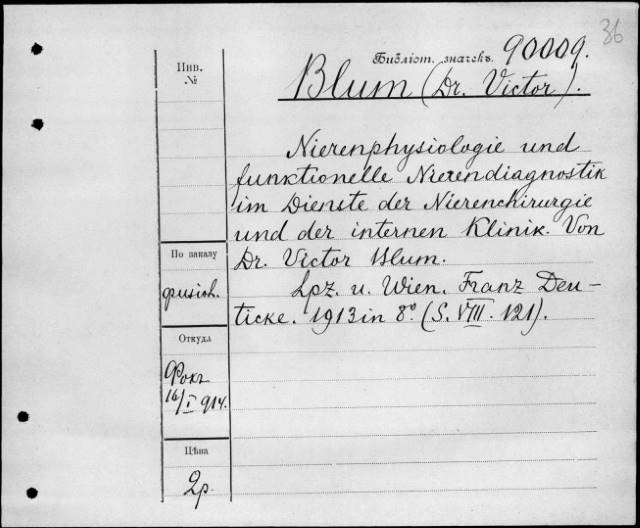 36
Библіот. значекъ. 90009.
Инв.
№
Blum (Dr. Victor).
Nierenphysiologie und
funktionelle Nierendiagnostik
im Dienste der Nierenchirurgie
und der internen Klinik. Von
Dr. Victor Blum.
Lpz. u. Wien. Franz Deu-
ticke. 1913 in 8º. (S. VIII. 121).
По заказу
физіол.
Откуда
Фокъ
16/I 914.
Цѣна
2р.